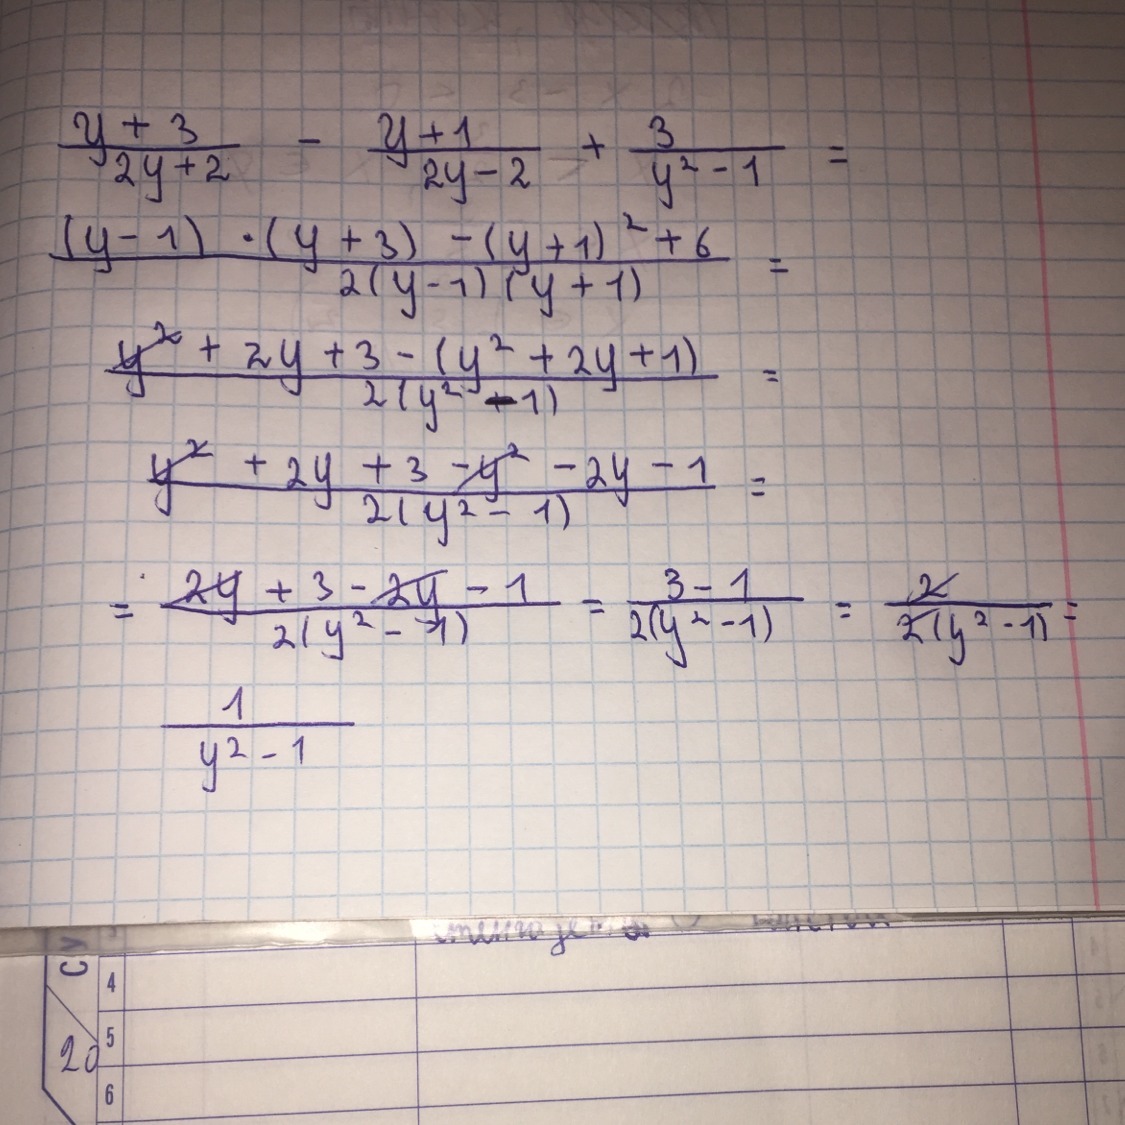 y + 3 / 2y + 2 - y + 1 / 2y - 2 + 3 / y² - 1 =
(y - 1) · (y + 3) - (y + 1)² + 6 / 2(y - 1)(y + 1) =
y² + 2y + 3 - (y² + 2y + 1) / 2(y² - 1) =
y² + 2y + 3 - y² - 2y - 1 / 2(y² - 1) =
= 2y + 3 - 2y - 1 / 2(y² - 1) = 3 - 1 / 2(y² - 1) = 2 / 2(y² - 1) =
1 / y² - 1
4
5
20
6